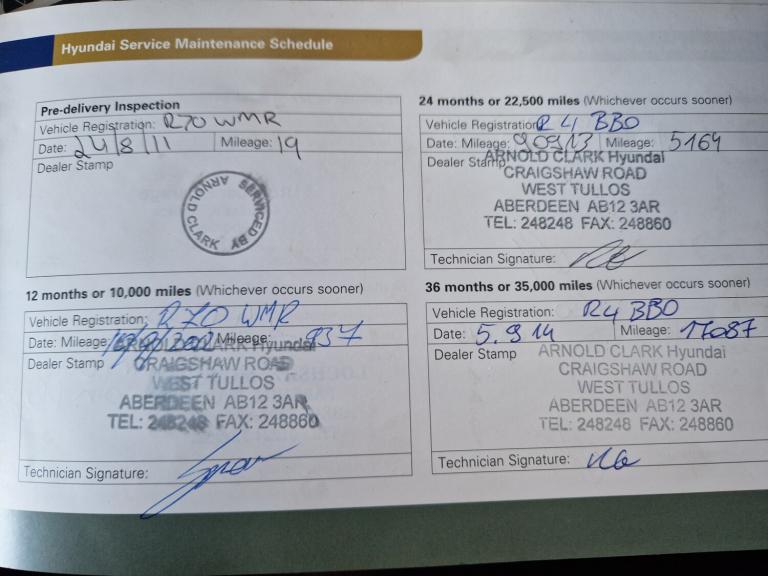 Hyundai Service Maintenance Schedule
Pre-delivery Inspection
Vehicle Registration: R70 WMR
Date: 24/8/11 Mileage: 19
Dealer Stamp
SERVICED BY
ARNOLD CLARK
12 months or 10,000 miles (Whichever occurs sooner)
Vehicle Registration: R70 WMR
Date: Mileage: Mileage: 937
ARNOLD CLARK Hyundai
Dealer Stamp CRAIGSHAW ROAD
WEST TULLOS
ABERDEEN AB12 3AR
TEL: 248248 FAX: 248860
Technician Signature:
24 months or 22,500 miles (Whichever occurs sooner)
Vehicle Registration R4 BBO
Date: Mileage: 9.09.13 Mileage: 5164
Dealer Stamp ARNOLD CLARK Hyundai
CRAIGSHAW ROAD
WEST TULLOS
ABERDEEN AB12 3AR
TEL: 248248 FAX: 248860
Technician Signature:
36 months or 35,000 miles (Whichever occurs sooner)
Vehicle Registration: R4 BBO
Date: 5.9.14 Mileage: 17087
Dealer Stamp ARNOLD CLARK Hyundai
CRAIGSHAW ROAD
WEST TULLOS
ABERDEEN AB12 3AR
TEL: 248248 FAX: 248860
Technician Signature: